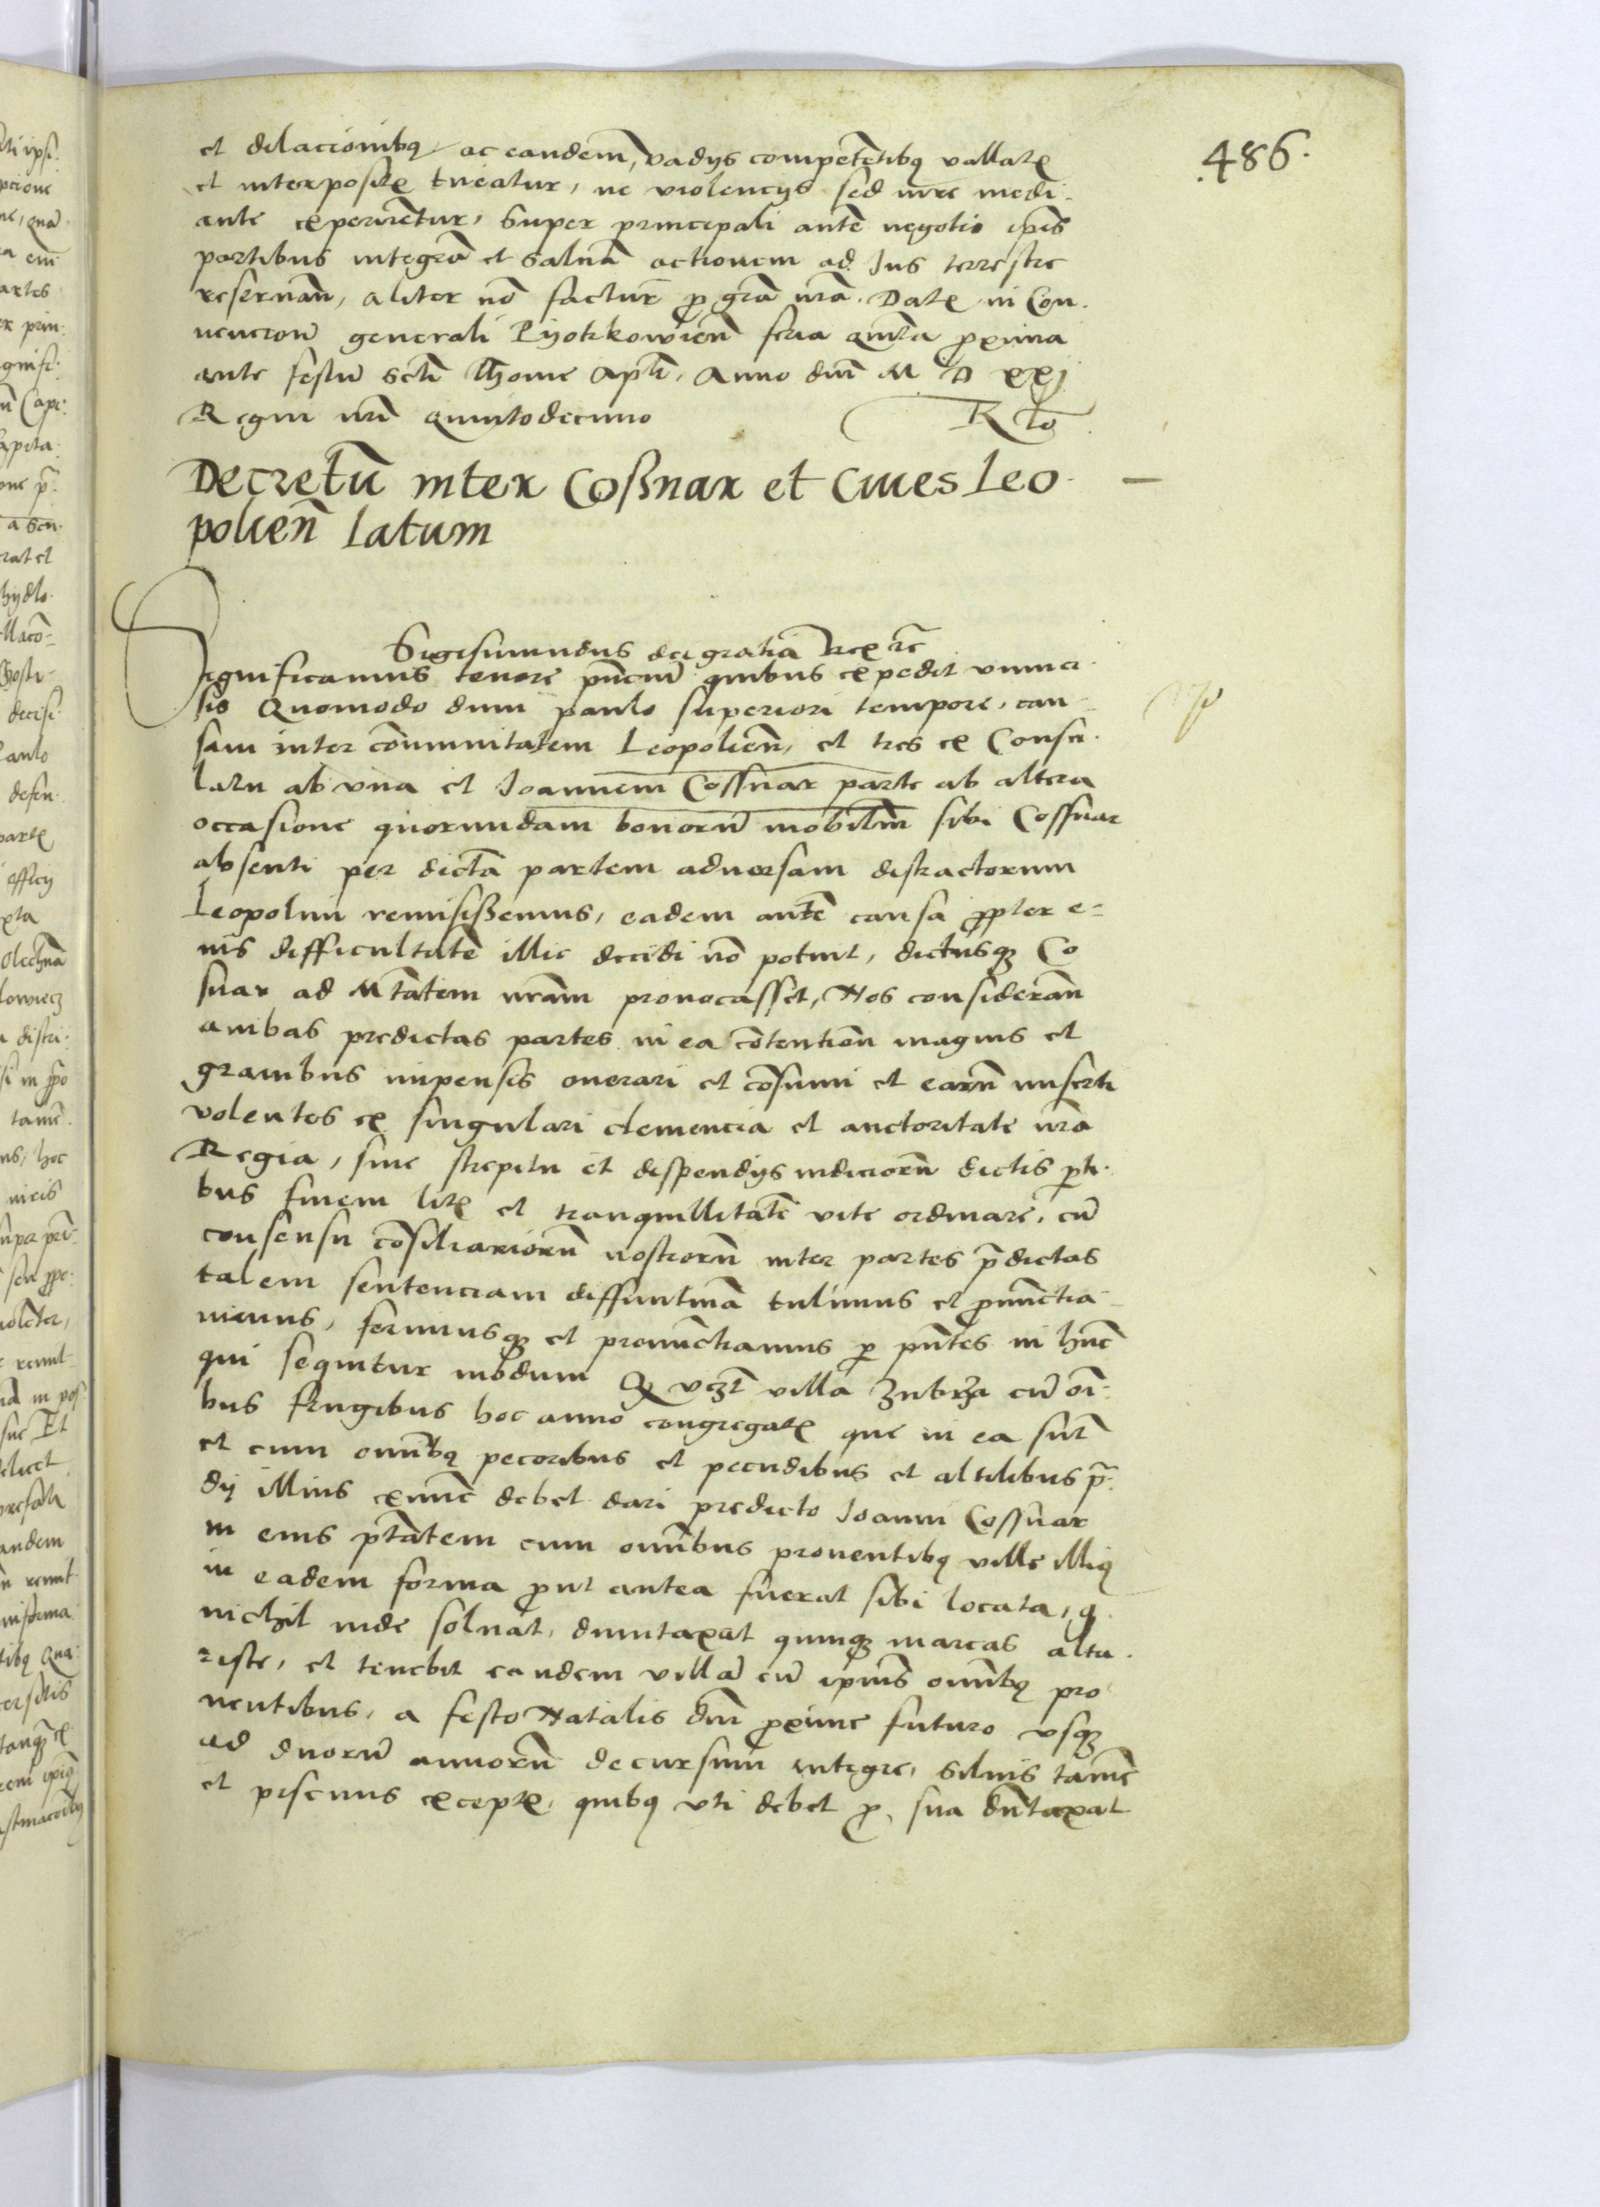 486.
et dilacionibꝫ ac eandem, vadijs competẽtibꝫ vallatꝭ
et interpositꝭ tueatur, ne violencijs sed iure medi-
ante experirẽtur, Super principali autẽ negotio ip̃is
partibus integrã et saluã actionem ad Ius terrestre
reseruañ, aliter nõ facturꝭ ꝓ grã nrã. Datꝭ in Con-
uencione generali Pijotrkowieñ feria quinta ꝓxima
ante festũ scti Thome Apli, Anno dñi M D xxj
Regni nri quintodecimo R to
Decretũ inter Coßnar et Ciues Leo-
polieñ latum
Sigismundus dei gratia Rex etc̃
Significamus tenore pñciũ quibus expedit vniuer-
sis Quomodo dum paulo superiori tempore, cau-
sam inter cõmunitatem Leopolieñ, et tres ex Consu-
latu ab vna et Ioannem Cossnar parte ab altera
occasione quorundam bonorũ mobiliũ sibi Cossnar
absenti per dictã partem aduersam distractorum
Leopolim remisißemus, eadem autẽ causa ꝓpter e-
ius difficultatẽ illic decidi nõ potuit, dictusqꝫ Co
snar ad Mtatem nrãm prouocasset, Nos considerañ
ambas predictas partes in ea cõtentioñ magnis et
grauibus impensis onerari et cõsumi et earũ miserti
volentes ex singulari clemencia et auctoritate nrã
Regia, sine strepitu et dispendijs iudiciorũ dictis ꝑti-
bus finem litꝭ et tranquillitatẽ vite ordinare, cũ
consensu cõsiliariorũ nostrorũ inter partes p̃dictas
talem sentenciam diffinitiuã tulimus et ꝓnũctia-
uimus, ferimusqꝫ et pronũctiamus ꝑ pñtes in hũc
qui sequitur modum Qꝫ vczt villa Zubrza cũ oĩ-
bus frugibus hoc anno congregatꝭ que in ea sũt
et cum omĩbꝫ pecoribus et pecudibus et altilibus p̃-
dij illius exnũc debet dari predicto Ioanni Cossnar
in eius ptãtem cum omĩbus prouentibꝫ ville illiꝫ
in eadem forma ꝓut antea fuerat sibi locata, qꝫ
nichil inde soluat, dumtaxat quinqꝫ marcas alta-
riste, et tenebit eandem villã cũ ipsius omĩbꝫ pro
uentibus, a festo Natalis dñi ꝓxime futuro vsqꝫ
ad duorũ annorũ decursum integre, siluis tamẽ
et piscinis exceptꝭ, quibꝫ vti debet ꝓ sua dũtaxat